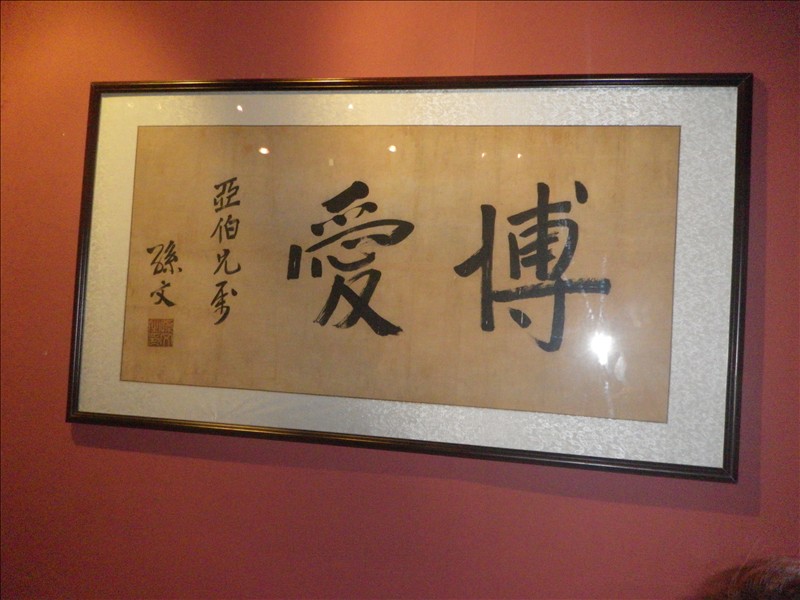 博愛
亞伯兄屬
孫文